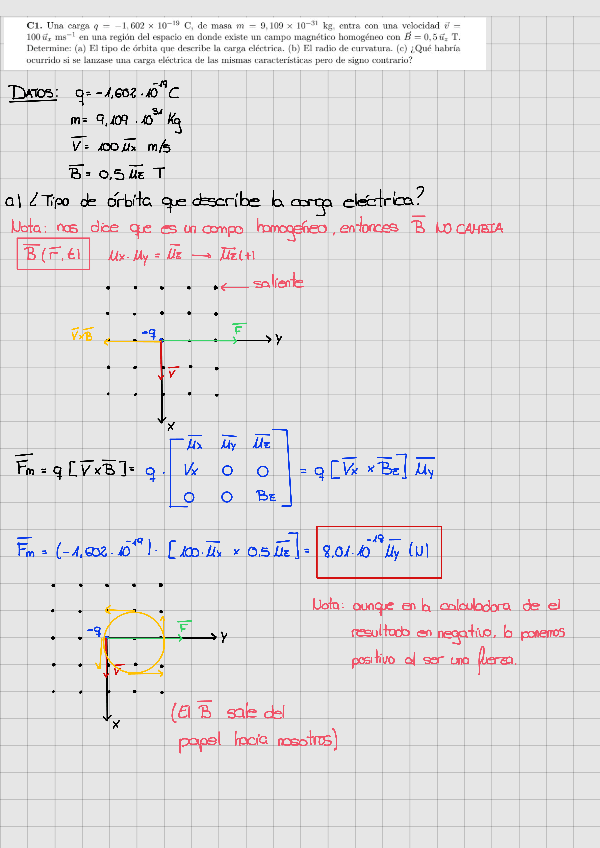 C1. Una carga q = −1,602 × 10⁻¹⁹ C, de masa m = 9,109 × 10⁻³¹ kg, entra con una velocidad v⃗ =
100 u⃗ₓ ms⁻¹ en una región del espacio en donde existe un campo magnético homogéneo con B⃗ = 0,5 u⃗_z T.
Determine: (a) El tipo de órbita que describe la carga eléctrica. (b) El radio de curvatura. (c) ¿Qué habría
ocurrido si se lanzase una carga eléctrica de las mismas características pero de signo contrario?
DATOS: q = -1,602·10⁻¹⁹ C
m = 9,109·10³¹ Kg
V̅ = 100 μ̅x m/s
B̅ = 0,5 μ̅z T
a) ¿Tipo de órbita que describe la carga eléctrica?
Nota: nos dice que es un campo homogéneo, entonces B̅ NO CAMBIA
B̅ (r̅, t) μx · μy = μ̅z → μ̅z(+)
saliente
V̅xB̅ -q F̅ Y
V̅
X
μ̅x μ̅y μ̅z
F̅m = q [V̅xB̅] = q · Vx 0 0 = q [V̅x x B̅z] μ̅y
0 0 Bz
F̅m = (-1,602·10⁻¹⁹) · [100·μ̅x x 0,5 μ̅z] = 8,01·10⁻¹⁸ μ̅y (N)
Nota: aunque en la calculadora de el
resultado en negativo, lo ponemos
positivo al ser una fuerza.
-q F̅ Y
V̅
X
(El B̅ sale del
papel hacia nosotros)